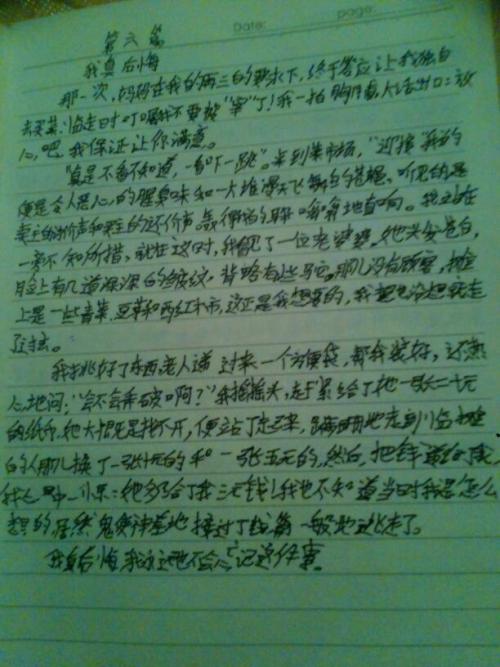 Date: page:
第六篇
我真后悔
那一次,妈妈在我的再三的要求下,终于答应让我独自
去买菜,临走时叮嘱我不要被"宰"了!我一拍胸脯,大话出口:放
心吧,我保证让你满意。
"真是不看不知道,一看吓一跳",来到菜市场,"迎接"我的
便是令人恶心的腥臭味和一大堆漫天飞舞的苍蝇、听见的是
卖主的讨价声和买主的还价声,我的耳朵嗡嗡地直响。我站在
不知所措,就在这时,我看见了一位老婆婆。她头发苍白,
脸上有几道深深的皱纹,背略有些驼。那儿没有顾客,摊
上是一些青菜,豆芽和西红柿,这正是我想要的,我便走
了过去。
我挑好了东西,老人递过来一个方便袋,帮我装好,还热
心地问:"会不会弄破啊?"我摇摇头,赶紧给了她一张二十元
的纸币,她大概是找不开,便站了起来,蹒跚地走到临摊
的人那儿换了一张十元的和一张五元的,然后,把钱递给了我。
我心里一乐:她多给了我三元钱!我也不知道当时我是怎么
想的,居然鬼使神差地接过了钱,箭一般地逃走了。
我真后悔,我永远也不会忘记这件事。